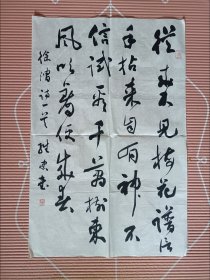 從來不見梅花譜信
手拈來自有神不
信試看千萬樹東
風吹着便成春
徐渭詩一首 書